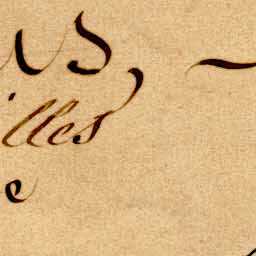 us, ~
illes
e